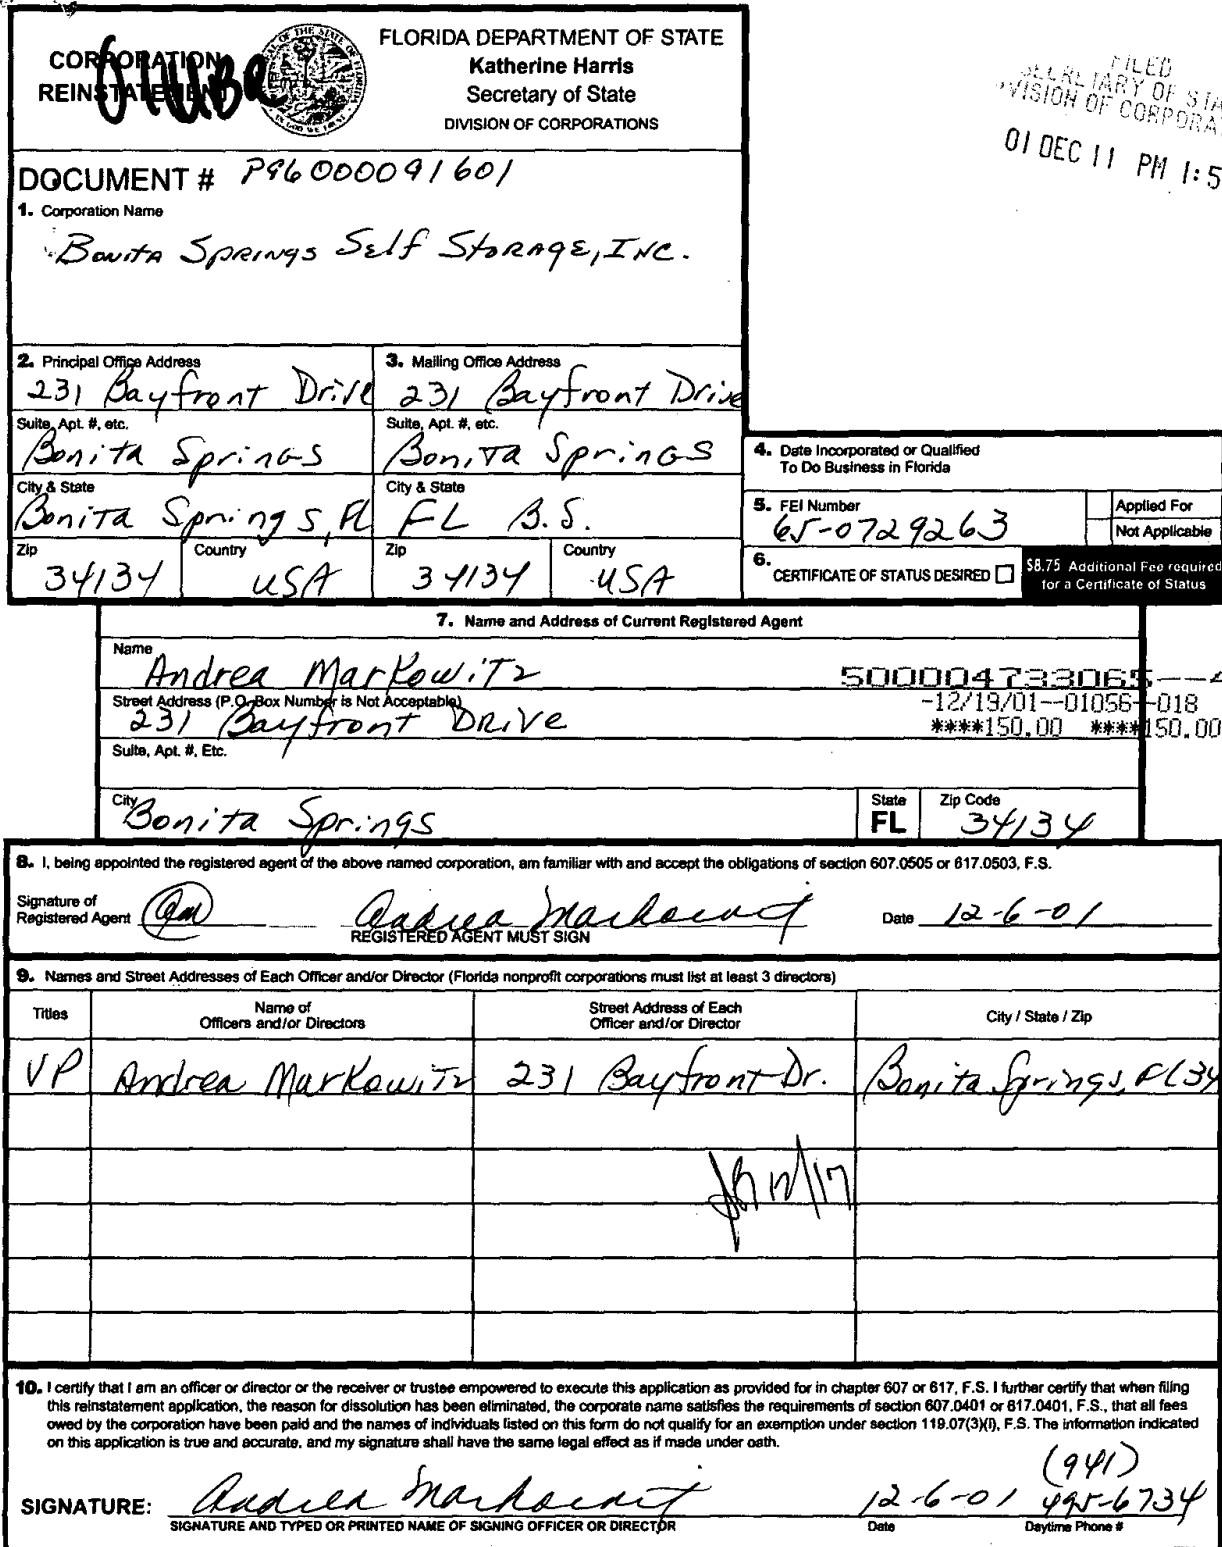 CORPORATION
REINSTATEMENT
FLORIDA DEPARTMENT OF STATE
Katherine Harris
Secretary of State
DIVISION OF CORPORATIONS
FILED
SECRETARY OF STA
DIVISION OF CORPORA
01 DEC 11 PM 1:5
DOCUMENT # P96000091601
1. Corporation Name
Bonita Springs Self Storage, INC.
2. Principal Office Address
231 Bayfront Drive
3. Mailing Office Address
231 Bayfront Drive
Suite, Apt. #, etc.
Bonita Springs
Suite, Apt. #, etc.
Bonita Springs
City & State
Bonita Springs, FL
City & State
FL B.S.
Zip
34134
Country
USA
Zip
34134
Country
USA
4. Date Incorporated or Qualified
To Do Business in Florida
5. FEI Number
65-0729263
Applied For
Not Applicable
6. CERTIFICATE OF STATUS DESIRED
$8.75 Additional Fee required
for a Certificate of Status
7. Name and Address of Current Registered Agent
Name
Andrea Markowitz
500004733065--4
-12/19/01--01056--018
****150.00 ****150.00
Street Address (P.O. Box Number is Not Acceptable)
231 Bayfront DRive
Suite, Apt. #, Etc.
City
Bonita Springs
State
FL
Zip Code
34134
8. I, being appointed the registered agent of the above named corporation, am familiar with and accept the obligations of section 607.0505 or 617.0503, F.S.
Signature of
Registered Agent
am
Andrea Markowitz
REGISTERED AGENT MUST SIGN
Date 12-6-01
9. Names and Street Addresses of Each Officer and/or Director (Florida nonprofit corporations must list at least 3 directors)
Titles
Name of
Officers and/or Directors
Street Address of Each
Officer and/or Director
City / State / Zip
VP Andrea Markowitz 231 Bayfront Dr. Bonita Springs, FL 34
12/17
10. I certify that I am an officer or director or the receiver or trustee empowered to execute this application as provided for in chapter 607 or 617, F.S. I further certify that when filing
this reinstatement application, the reason for dissolution has been eliminated, the corporate name satisfies the requirements of section 607.0401 or 617.0401, F.S., that all fees
owed by the corporation have been paid and the names of individuals listed on this form do not qualify for an exemption under section 119.07(3)(i), F.S. The information indicated
on this application is true and accurate, and my signature shall have the same legal effect as if made under oath.
SIGNATURE: Andrea Markowitz
SIGNATURE AND TYPED OR PRINTED NAME OF SIGNING OFFICER OR DIRECTOR
12-6-01
Date
(941)
495-6734
Daytime Phone #